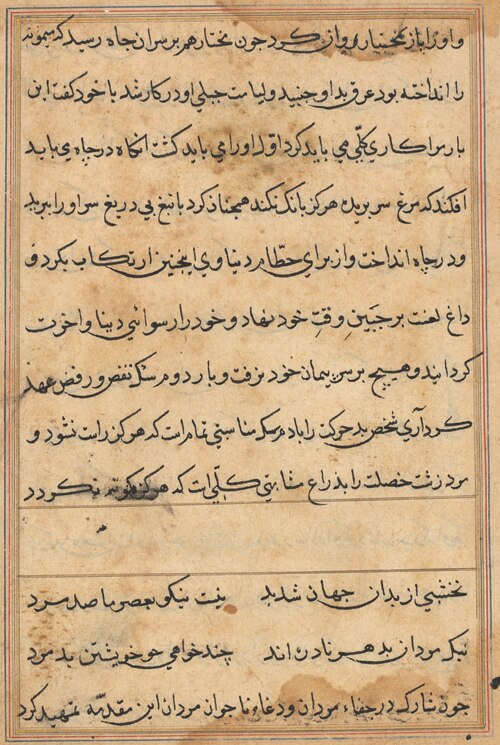 و او را باز بختیار روان کرد چون بختار هم بر سر آن چاه رسید که میمونه
را انداخته بود عرق بد او جنبید و لیاست جبلی او در کار شد با خود گفت این
بار مرا کاری کلّی می باید کرد اوّل او را می باید کشت آنگاه در چاه می باید
افکند که مرغ سر بریده هرگز بانک نکند همچنان کرد با تیغ بی دریغ سر او را برید
و در چاه انداخت و از برای حطّام دنیاوی اینچنین ارتکاب بکرد و
داغ لعنت بر جبین وقت خود نهاد و خود را رسوائی دنیا و اخرت
کردانید و هیچ بر سر پیمان خود نرفت و بار دوم نقض و رفض عهد
کرد آری شخص بد حرکت را با دم سک مناسبتی تمام است که هرکز راست نشود و
مرد زشت خصلت را بذراع مشابهتی کلّی است که هرکز نکردد
نخشبی از بدان جهان شد بد نیست نیکو بعصر ما صد مرد
نیک مردان بدهر نادره اند چند خواهی جو خویشتن بد مرد
جون شارک در جفاء مردان و دغاء ناجوان مردان این مقدّمه تمهید کرد